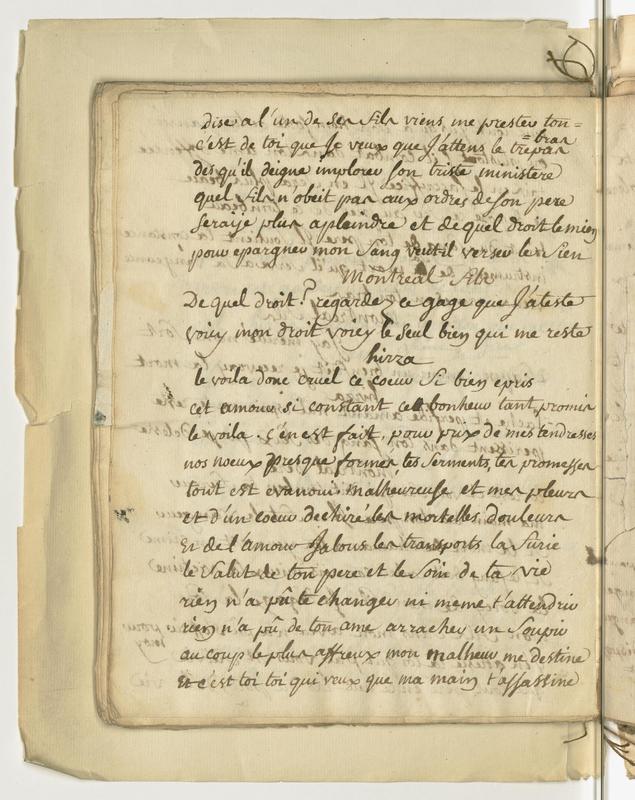 dise a l'un de ses fils viens me prester ton=
=bras
c'est de toi que Je veux que J'attens le trepas
des qu'il deigne implorer son triste ministere
quel fils n'obeit pas aux ordres de son pere
seraije plus apleindre et de quel droit le mien
pour epargner mon sang veutil verser le sien
Montreal fils
De quel droit? regarde ce gage que J'ateste
voicy mon droit voicy le seul bien qui me reste
hirza
le voila donc cruel ce coeur si bien epris
cet amour si constant ce bonheur tant promis
le voila. c'en est fait, pour prix de mes tendresses
nos noeux presque formes tes serments, tes promesses
tout est evanoui malheureuse et mes pleurs
et d'un coeur dechiré les mortelles douleurs
Et de l'amour Jalous les transports la furie
le salut de ton pere et le soin de ta vie
rien n'a pû te changer ni meme t'attendrir
rien n'a pû de ton ame arracher un soupir
au coup le plus affreux mon malheur me destine
Et c'est toi toi qui veux que ma main t'assassine